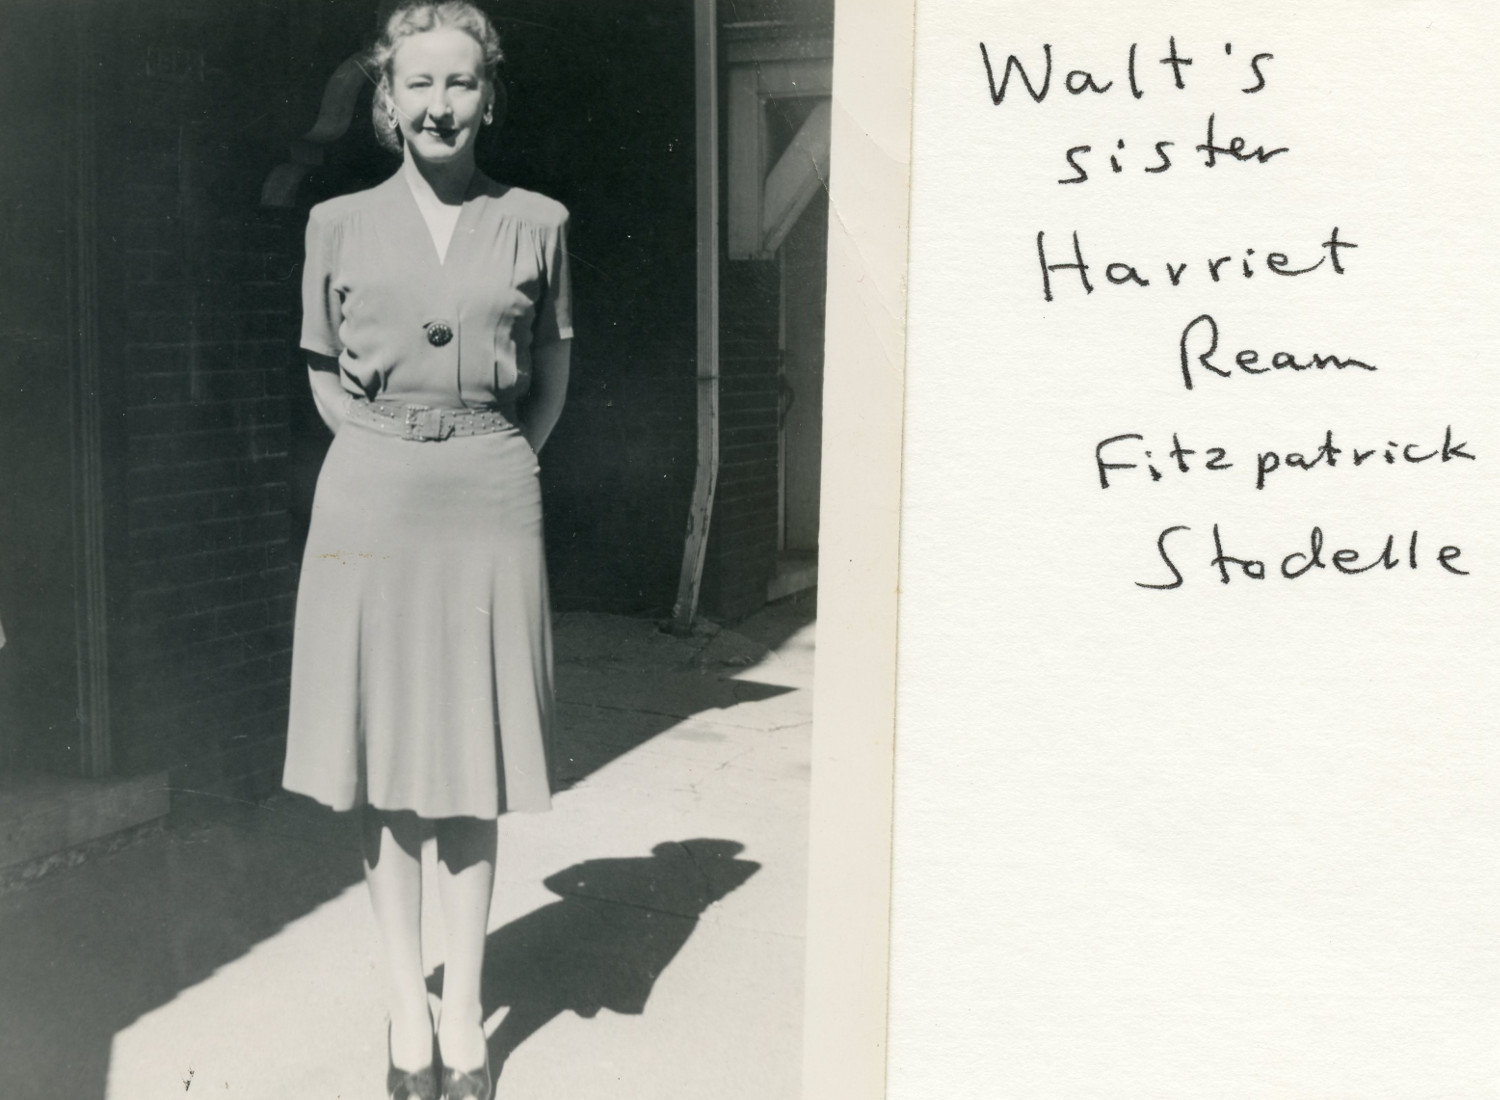 Walt's
sister
Harriet
Ream
Fitzpatrick
Stodelle